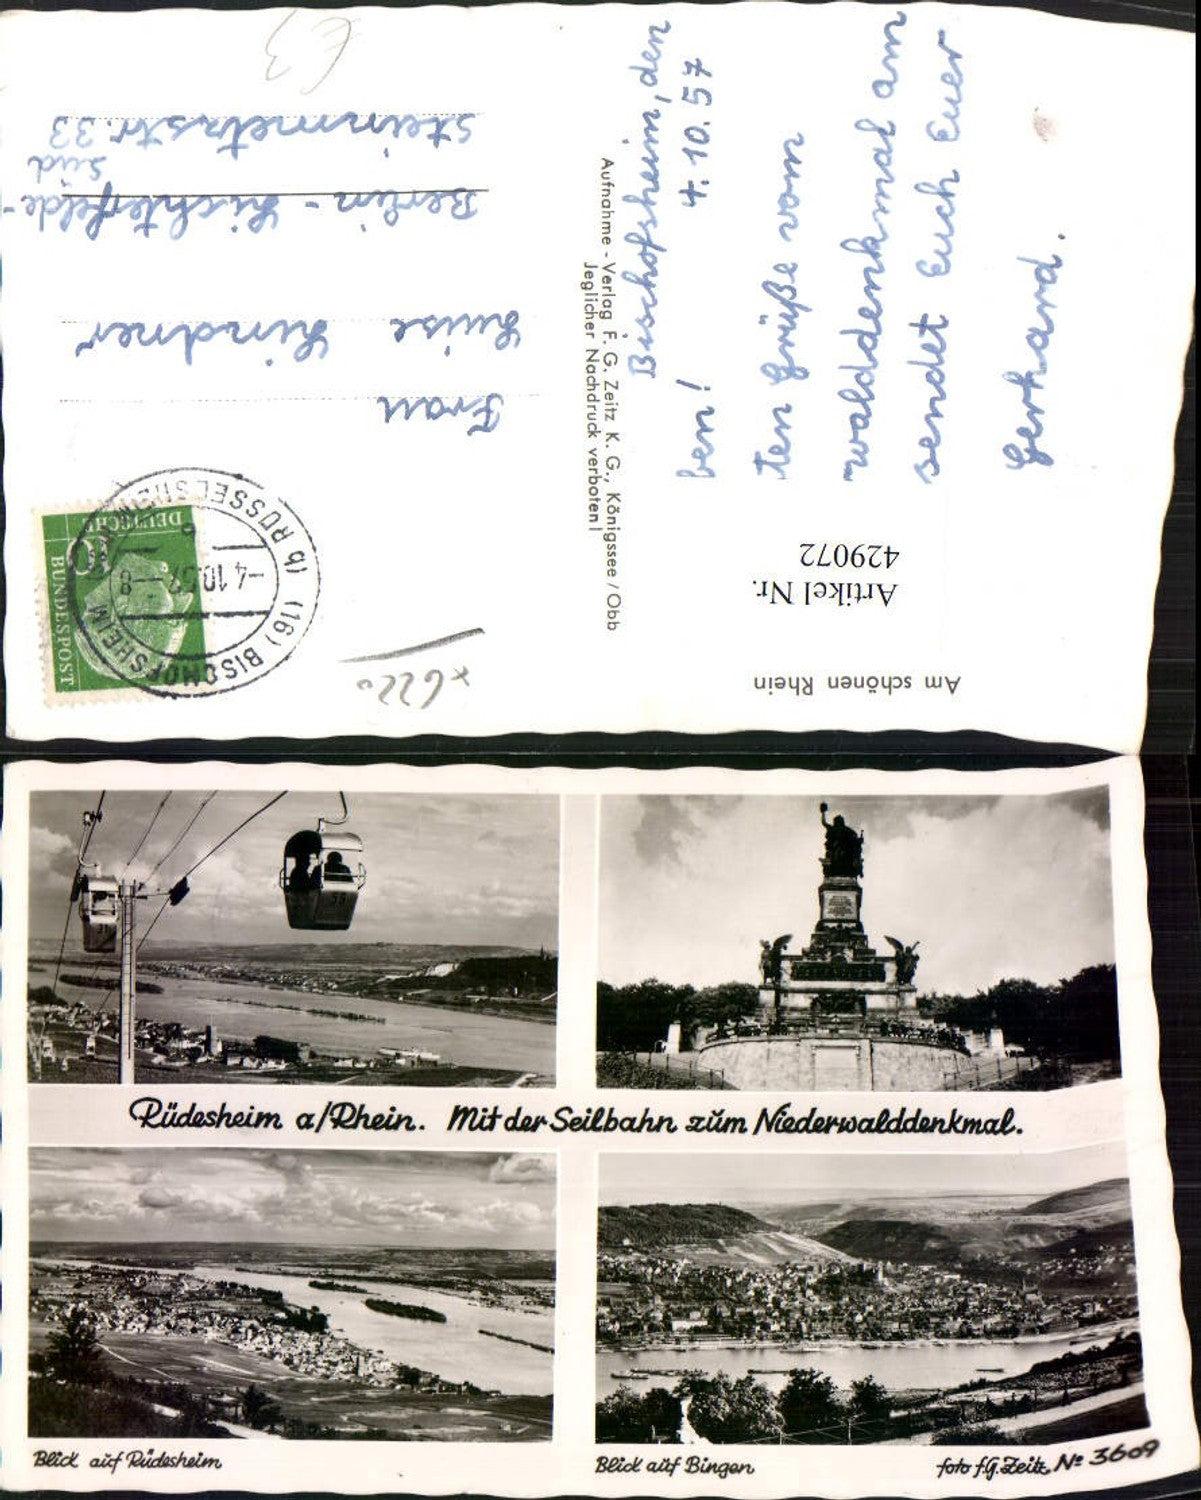 Am schönen Rhein
Artikel Nr.
429072
Bischofsheim, den
4.10.57
ben!
ten Grüße vom
walddenkmal am
sendet Euch Euer
Gerhard.
Aufnahme - Verlag F. G. Zeitz K. G., Königssee / Obb
Jeglicher Nachdruck verboten!
x6220
DEUTSCHE
BUNDESPOST
10
(16) BISCHOFSHEIM
(b RÜSSELSHEIM)
-4.10.57-8
Frau
Luise Lindner
Berlin-Lichterfelde-
Süd
Steinmetzstr. 33
€3
31
33
Rüdesheim a/Rhein. Mit der Seilbahn zum Niederwalddenkmal.
Blick auf Rüdesheim
Blick auf Bingen
foto f.G.Zeitz No 3609